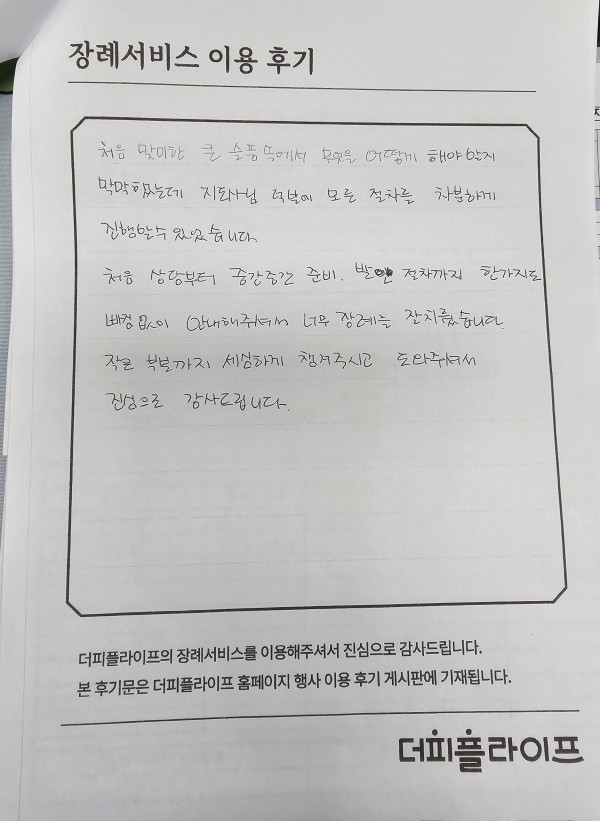 장례서비스 이용 후기
처음 맞이한 큰 슬픔속에서 무엇을 어떻게 해야할지
막막했는데 지도사님 덕분에 모든 절차를 차분하게
진행할수 있었습니다.
처음 상담부터 중간중간 준비. 발인 절차까지 한가지도
빠짐 없이 안내해주셔서 너무 장례를 잘치뤘습니다.
작은 부분까지 세심하게 챙겨주시고 도와주셔서
진심으로 감사드립니다.
더피플라이프의 장례서비스를 이용해주셔서 진심으로 감사드립니다.
본 후기문은 더피플라이프 홈페이지 행사 이용 후기 게시판에 기재됩니다.
더피플라이프